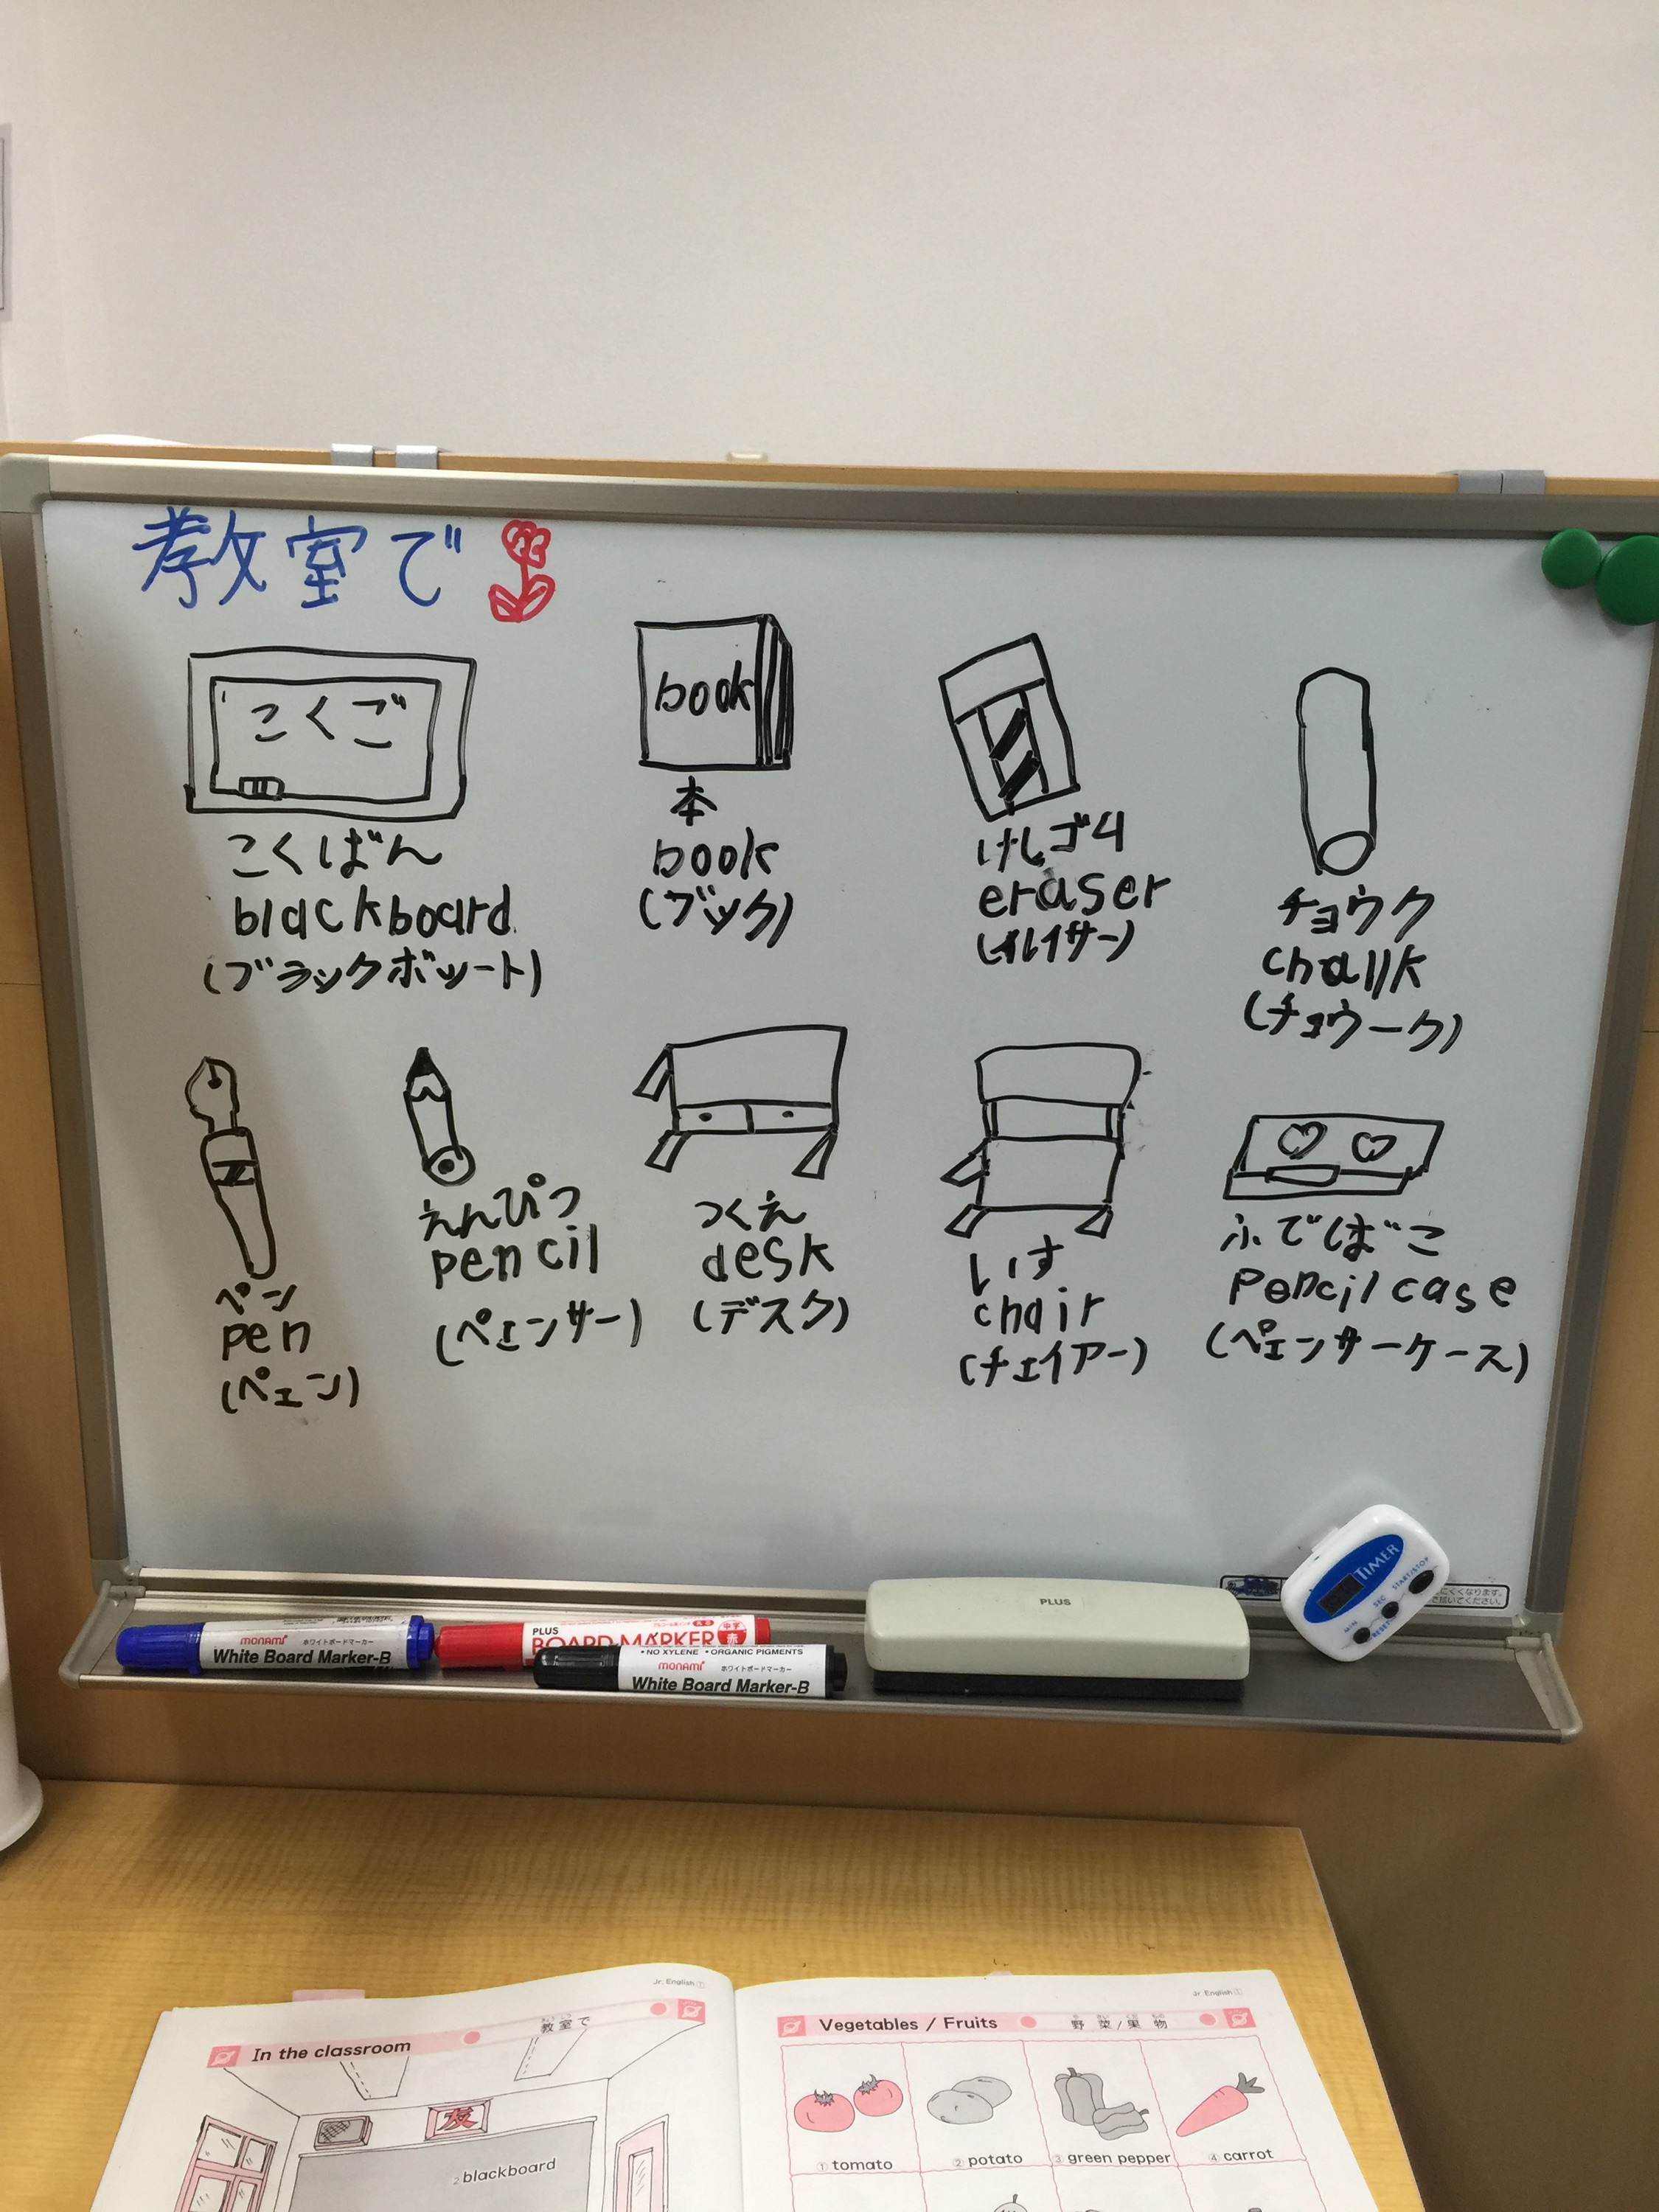 教室で
こくご
こくばん
blackboard
(ブラックボッート)
book
本
book
(ブック)
けしゴム
eraser
(イレイサー)
チョウク
chalk
(チョウーク)
ペン
pen
(ペェン)
えんぴつ
pencil
(ペェンサー)
つくえ
desk
(デスク)
いす
chair
(チェイアー)
ふでばこ
pencil case
(ペェンサーケース)
monami ホワイトボードマーカー
White Board Marker-B
PLUS
BOARD MARKER 中字 赤
• NO XYLENE • ORGANIC PIGMENTS
monami ホワイトボードマーカー
White Board Marker-B
PLUS
TIMER
START/STOP
SEC
MIN
RESET
にくくなります。
で拭いてください。
Jr. English 1
In the classroom 教室で
友
2 blackboard
Jr. English 1
Vegetables / Fruits 野菜/果物
① tomato
② potato
③ green pepper
④ carrot